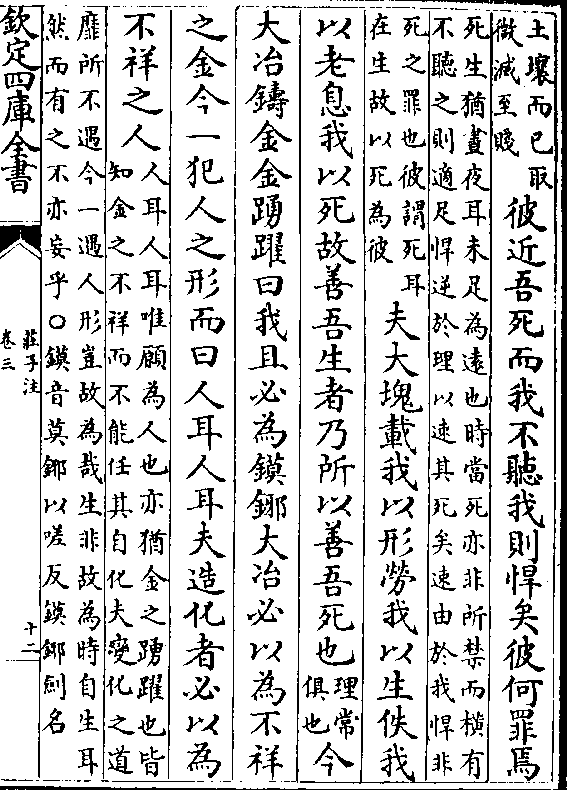 土壤而已取
微滅至賤
彼近吾死而我不聽我則悍矣彼何罪焉
死生猶晝夜耳未足為遠也時當死亦非所禁而橫有
不聽之則適足悍逆於理以速其死矣速由於我悍非
死之罪也彼謂死耳
在生故以死為彼
夫大塊載我以形勞我以生佚我
以老息我以死故善吾生者乃所以善吾死也
理常
俱也
今
大冶鑄金金踴躍曰我且必為鏌鋣大冶必以為不祥
之金今一犯人之形而曰人耳人耳夫造化者必以為
不祥之人
人耳人耳唯願為人也亦猶金之踴躍也皆
知金之不祥而不能任其自化夫變化之道
靡所不遇今一遇人形豈故為哉生非故為時自生耳
然而有之不亦妄乎○鏌音莫鋣以嗟反鏌鋣劍名
欽定四庫全書
莊子注
卷三
十二